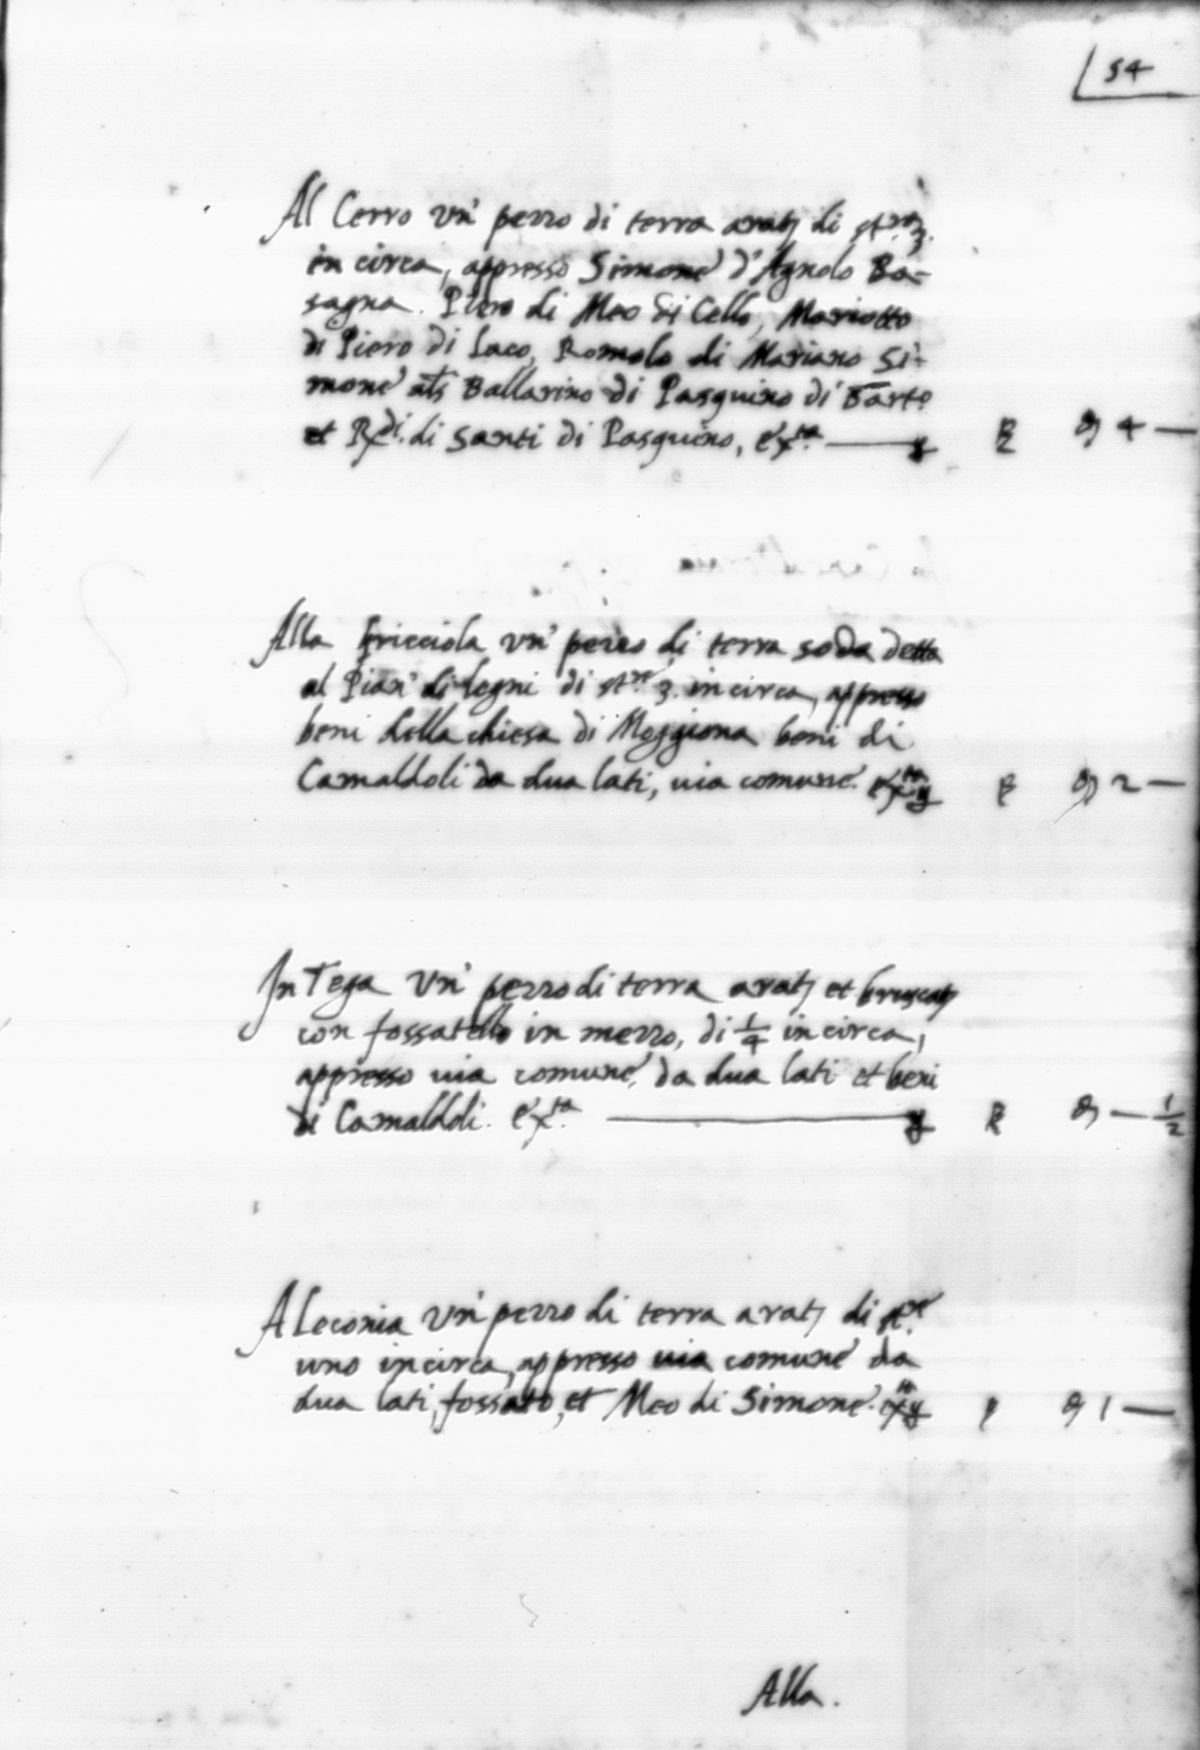 54
Al Cerro un' pezzo di terra arat. di st.ra 3.
in circa, appresso Simone d'Agnolo Ba=
sagna. Piero di Meo di Cello, Mariotto
di Piero di Iaco, Romolo di Mariano Si=
mone als Ballarino di Pasquino di Bart.o
et Redi. di Santi di Pasquino, ex.ta 4 —
Alla Fricciola un' pezzo di terra soda detta
al Pian' di legni di st.re 3. in circa, appresso
beni della chiesa di Moggiona beni di
Camaldoli da dua lati, uia comune. ex.ta 2 —
In Tega un' pezzo di terra arat. et bruscat.
con fossatello in mezzo, di 1/4 in circa,
appresso uia comune, da dua lati et beni
di Camaldoli. ex.ta — 1/2
A Leconia un' pezzo di terra arat. di st.re
uno in circa, appresso uia comune da
dua lati, fossato, et Meo di Simone. ex.ta 1 —
Alla.